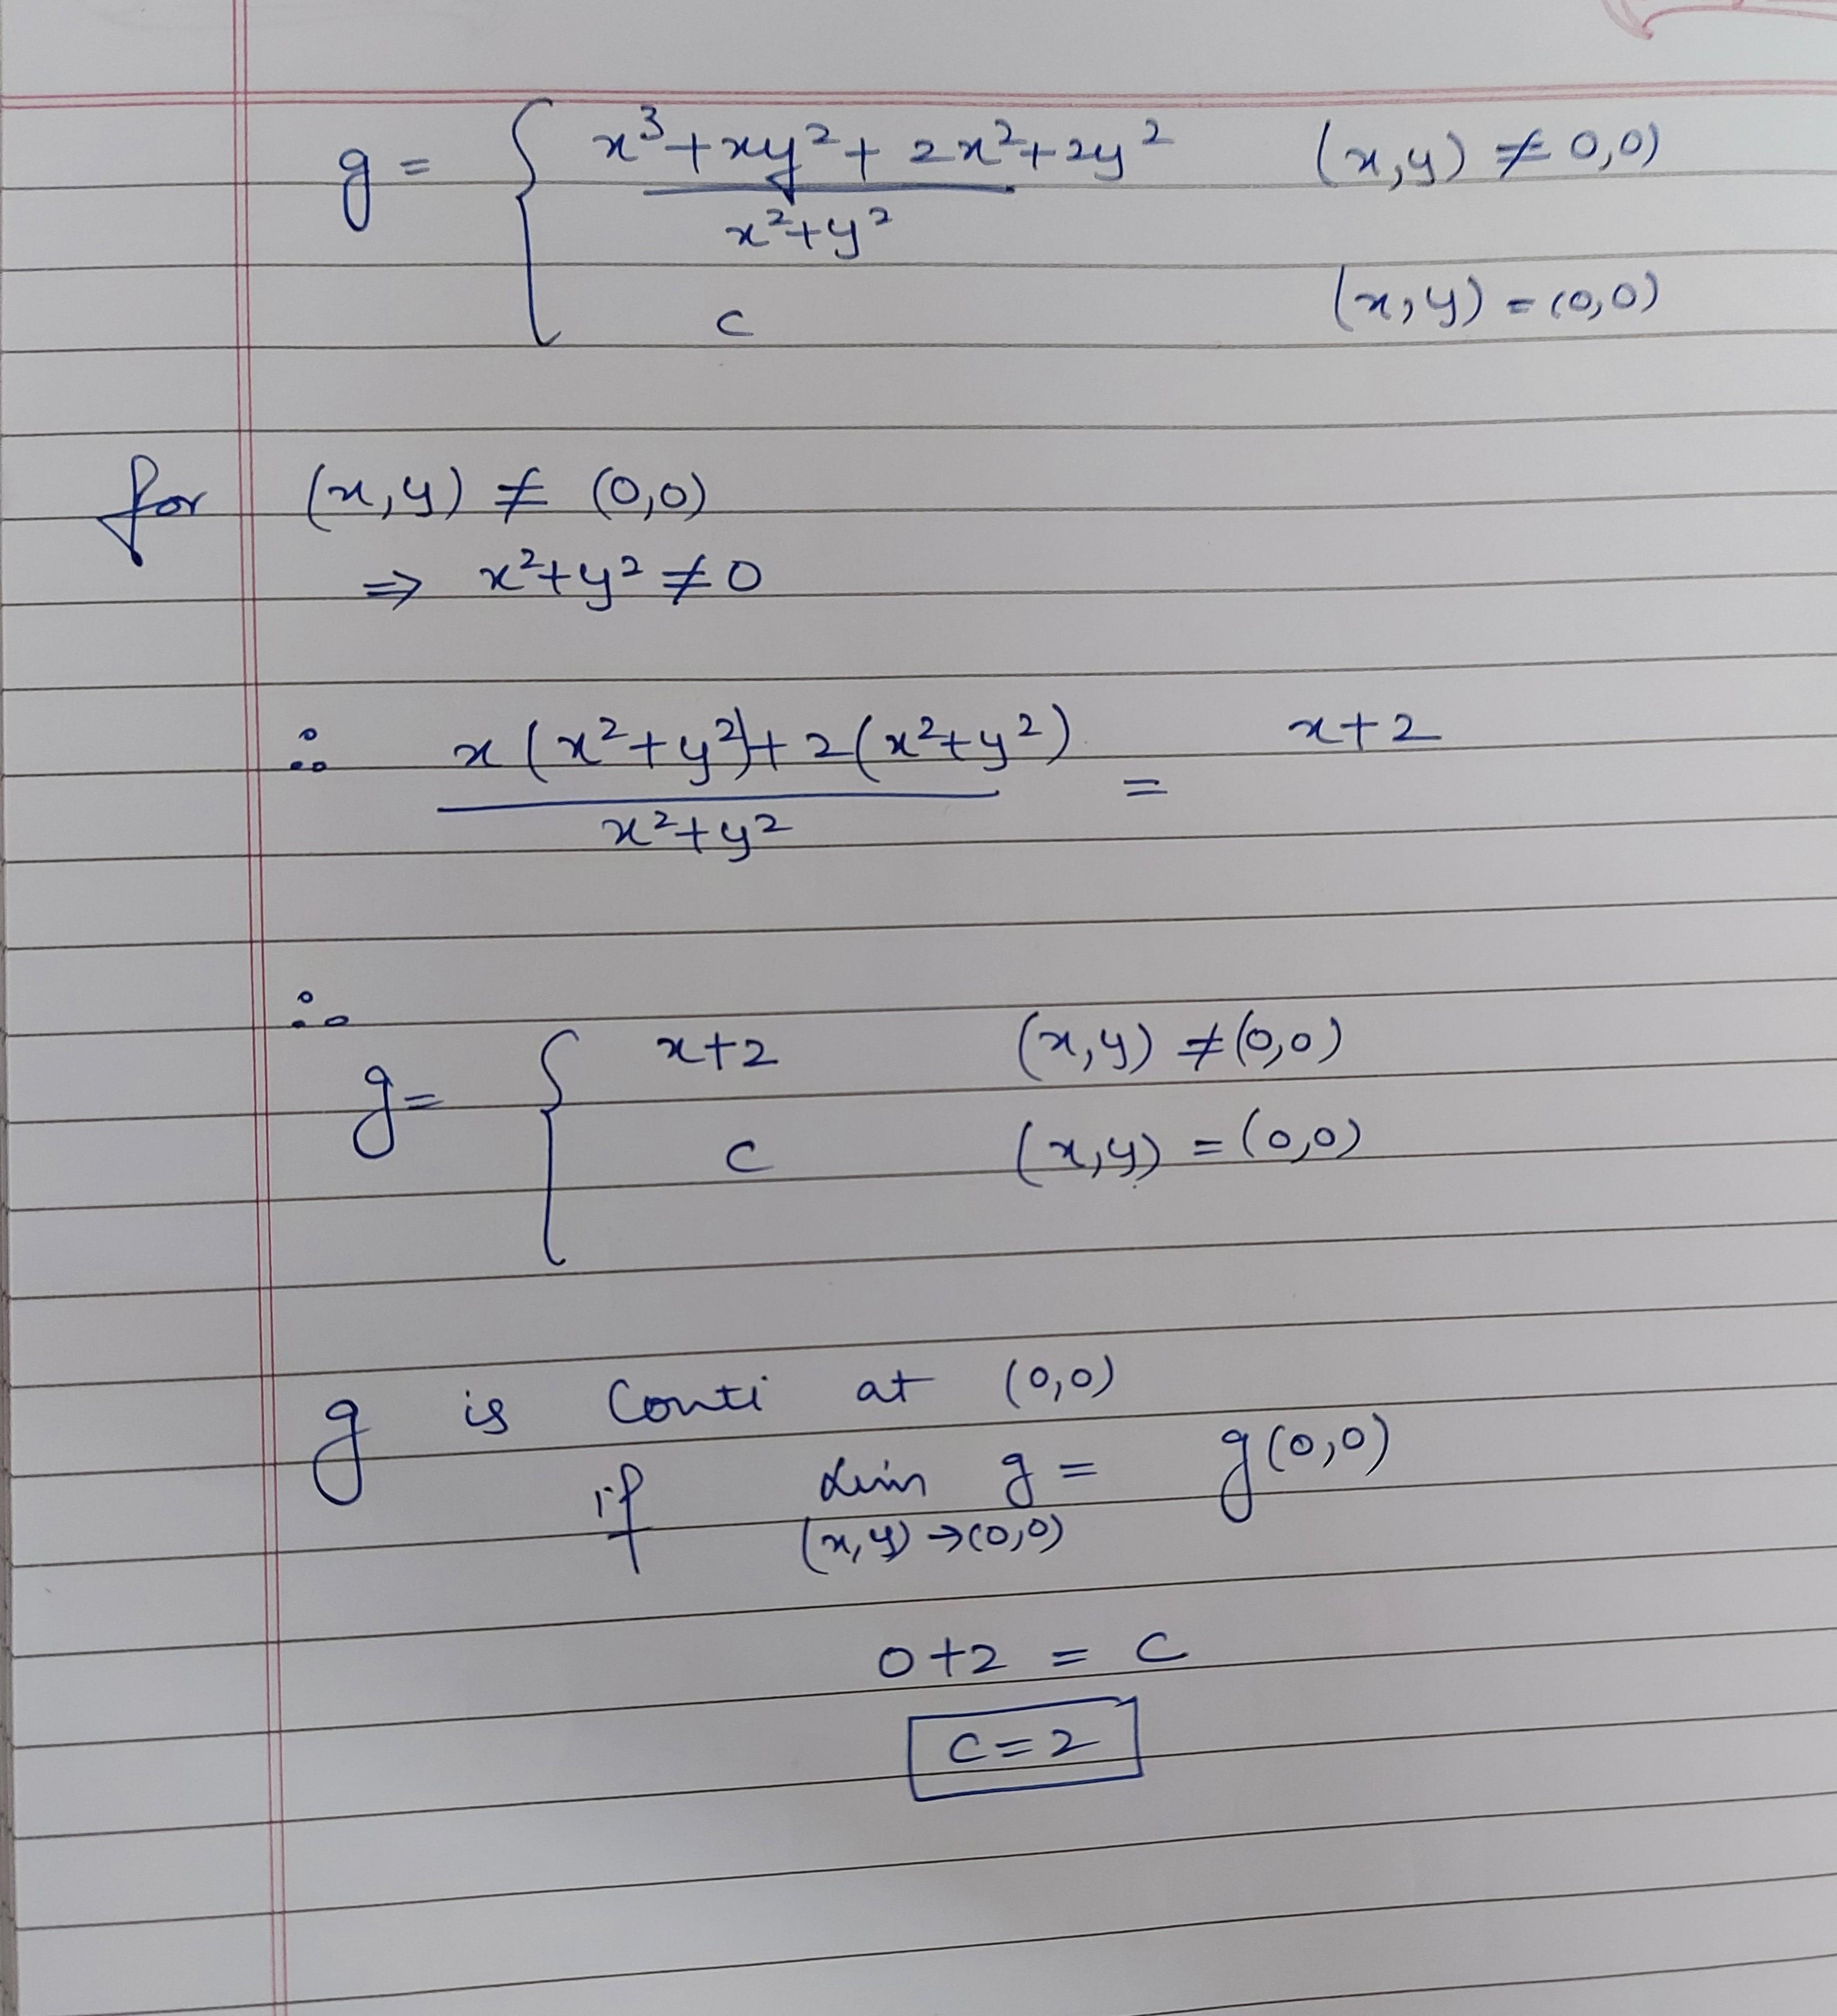 g = { x³+xy²+2x²+2y² (x,y) ≠ 0,0)
x²+y²
c (x,y) = (0,0)
for (x,y) ≠ (0,0)
⇒ x²+y² ≠ 0
∴ x(x²+y²)+2(x²+y²) = x+2
x²+y²
∴
g= { x+2 (x,y) ≠ (0,0)
c (x,y) = (0,0)
g is Conti at (0,0)
if Lim g = g(0,0)
(x,y)→(0,0)
0+2 = C
C=2